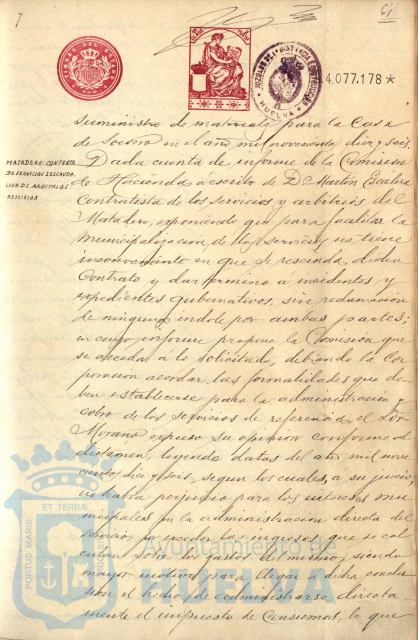 7
61
TIMBRE DEL ESTADO
HUELVA
4.077.178 *
suministro de materiales para la Casa
de Socorro en el año mil novecientos diez y seis.
MATADERO: CONTRATA
DE SERVICIOS I RECAUDA
CION DE ARBITRIOS
RESCICION
Dada cuenta de informe de la Comision
de Hacienda á escrito de D. Martin
Contratista de los servicios y arbitrios del
Matadero, exponiendo que para facilitar la
municipalizacion de los servicios, no tiene
inconveniente en que se rescinda dicho
Contrato y dar término a incidentes y
expedientes gubernativos, sin reclamacion
de ninguna indole por ambas partes;
en cuyo informe propone la Comision que
se acceda á lo solicitado, debiendo la Cor
poracion acordar las formalidades que de
ben establecerse para la administracion y
cobro de los servicios de referencia, el Sor.
Morano expuso su opinion conforme al
dictamen, leyendo datos del año mil nove
cientos diez y seis, segun los cuales, a su juicio,
no habia perjuicio para los intereses mu
nicipales en la administracion directa del
servicio, por exceder los ingresos que se cal
culan sobre los gastos del mismo, siendo
mayor motivo para llegar a dicha conclu
sion el hecho de administrarse directa
mente el impuesto de Consumos, lo que
PORTUS MARIS
ET TERRA
Ayuntamiento de
HUELVA